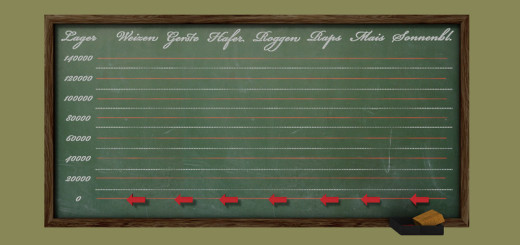 Lager Weizen Gerste Hafer. Roggen Raps Mais Sonnenbl.
140000
120000
100000
80000
60000
40000
20000
0